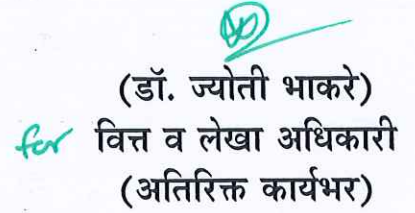 (डॉ. ज्योती भाकरे)
for वित्त व लेखा अधिकारी
(अतिरिक्त कार्यभर)